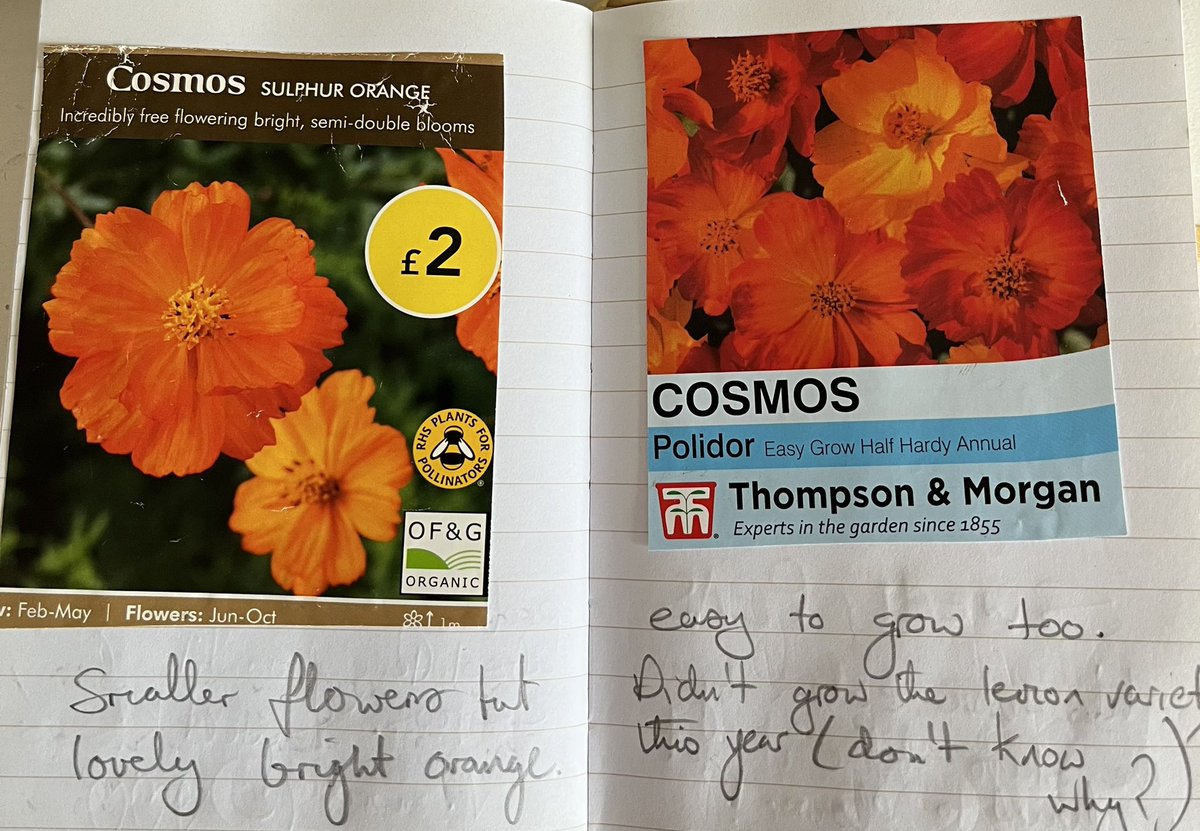 Cosmos SULPHUR ORANGE
Incredibly free flowering bright, semi-double blooms
£2
RHS PLANTS FOR POLLINATORS
OF&G
ORGANIC
Feb-May | Flowers: Jun-Oct
1m
Smaller flowers but
lovely bright orange.
COSMOS
Polidor Easy Grow Half Hardy Annual
Thompson & Morgan
Experts in the garden since 1855
easy to grow too.
Didn't grow the lemon variet
this year (don't know
why?)